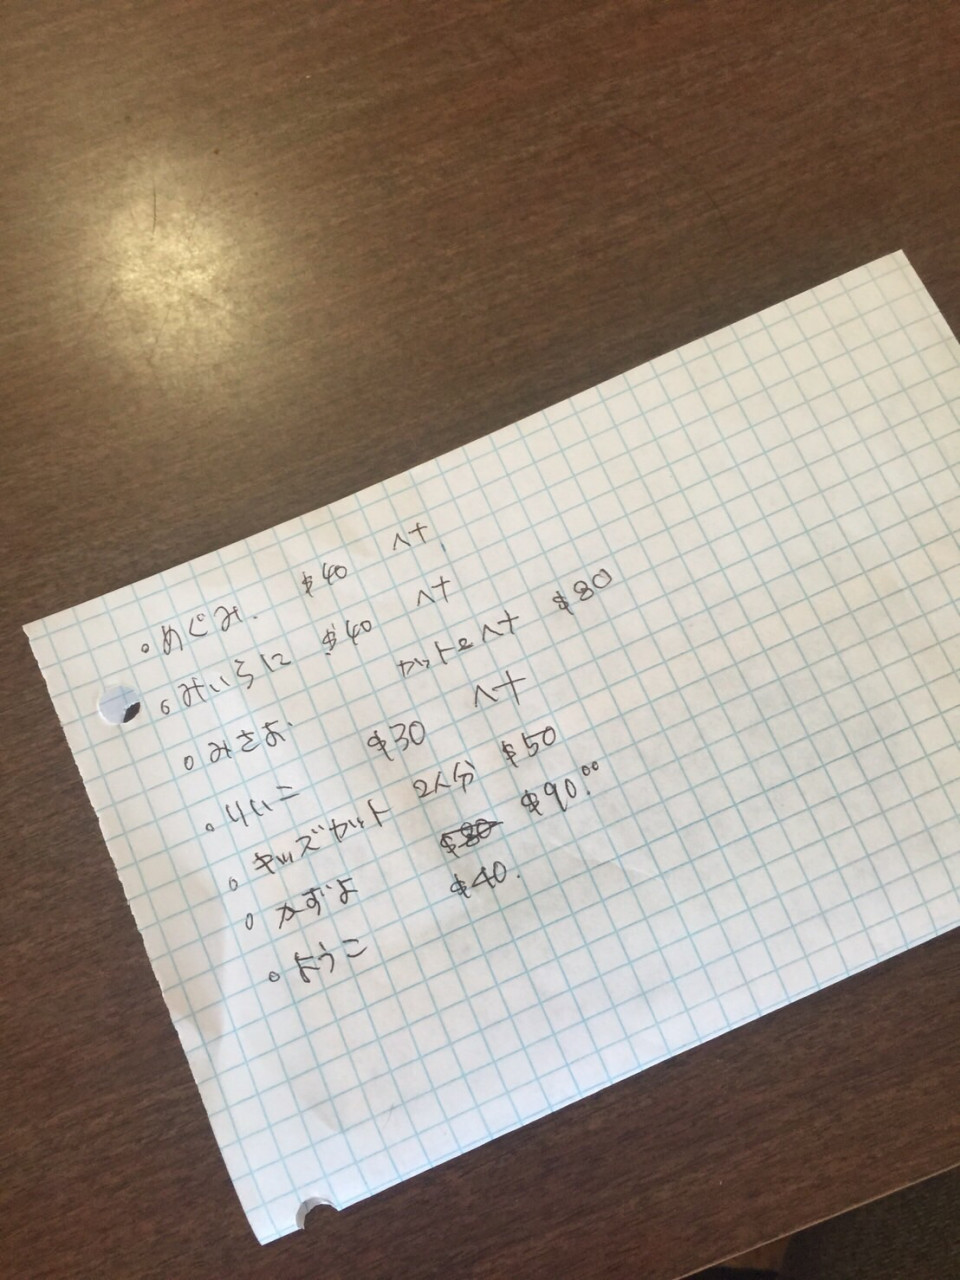 。めぐみ. $40 ヘナ
。みいらに $40 ヘナ
。みさお カットとヘナ $80
。りいこ $30 ヘナ
。キッズカット 2人分 $50
。かずよ $80 $90.00
。ようこ $40.